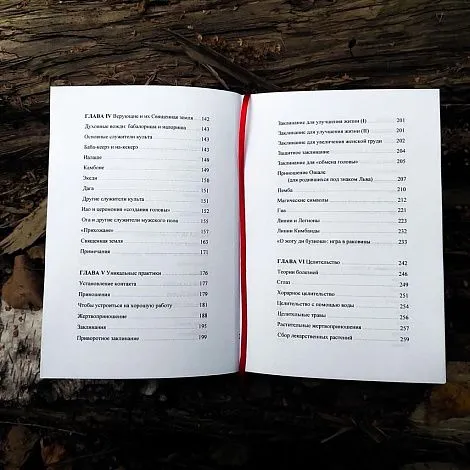 ГЛАВА IV Верующие и их Священная земля 142
Духовные вожди: бабалориша и иалориша 143
Основные служители культа 143
Баба-кекерэ и иа-кекерэ 143
Иалаше 148
Камбоне 149
Экеди 150
Дага 151
Другие служители культа 151
Иао и церемония «создания головы» 152
Ога и другие служители мужского пола 155
«Прихожане» 157
Священная земля 163
Примечания 171
ГЛАВА V Уникальные практики 176
Установление контакта 177
Приношения 179
Чтобы устроиться на хорошую работу 181
Жертвоприношение 188
Заклинания 195
Приворотное заклинание 199
Заклинание для улучшения жизни (I) 201
Заклинание для улучшения жизни (II) 201
Заклинание для увеличения женской груди 202
Защитное заклинание 204
Заклинание для «обмена головы» 205
Приношение Ошале
(для родившихся под знаком Льва) 207
Пемба 210
Магические символы 212
Гиа 221
Линии и Легионы 221
Линии Кимбанды 231
«О жогу ди бузиос»: игра в раковины 233
ГЛАВА VI Целительство 242
Теория болезней 246
Сглаз 249
Хорарное целительство 251
Целительство с помощью воды 254
Целительные травы 256
Растительные жертвоприношения 257
Сбор лекарственных растений 259